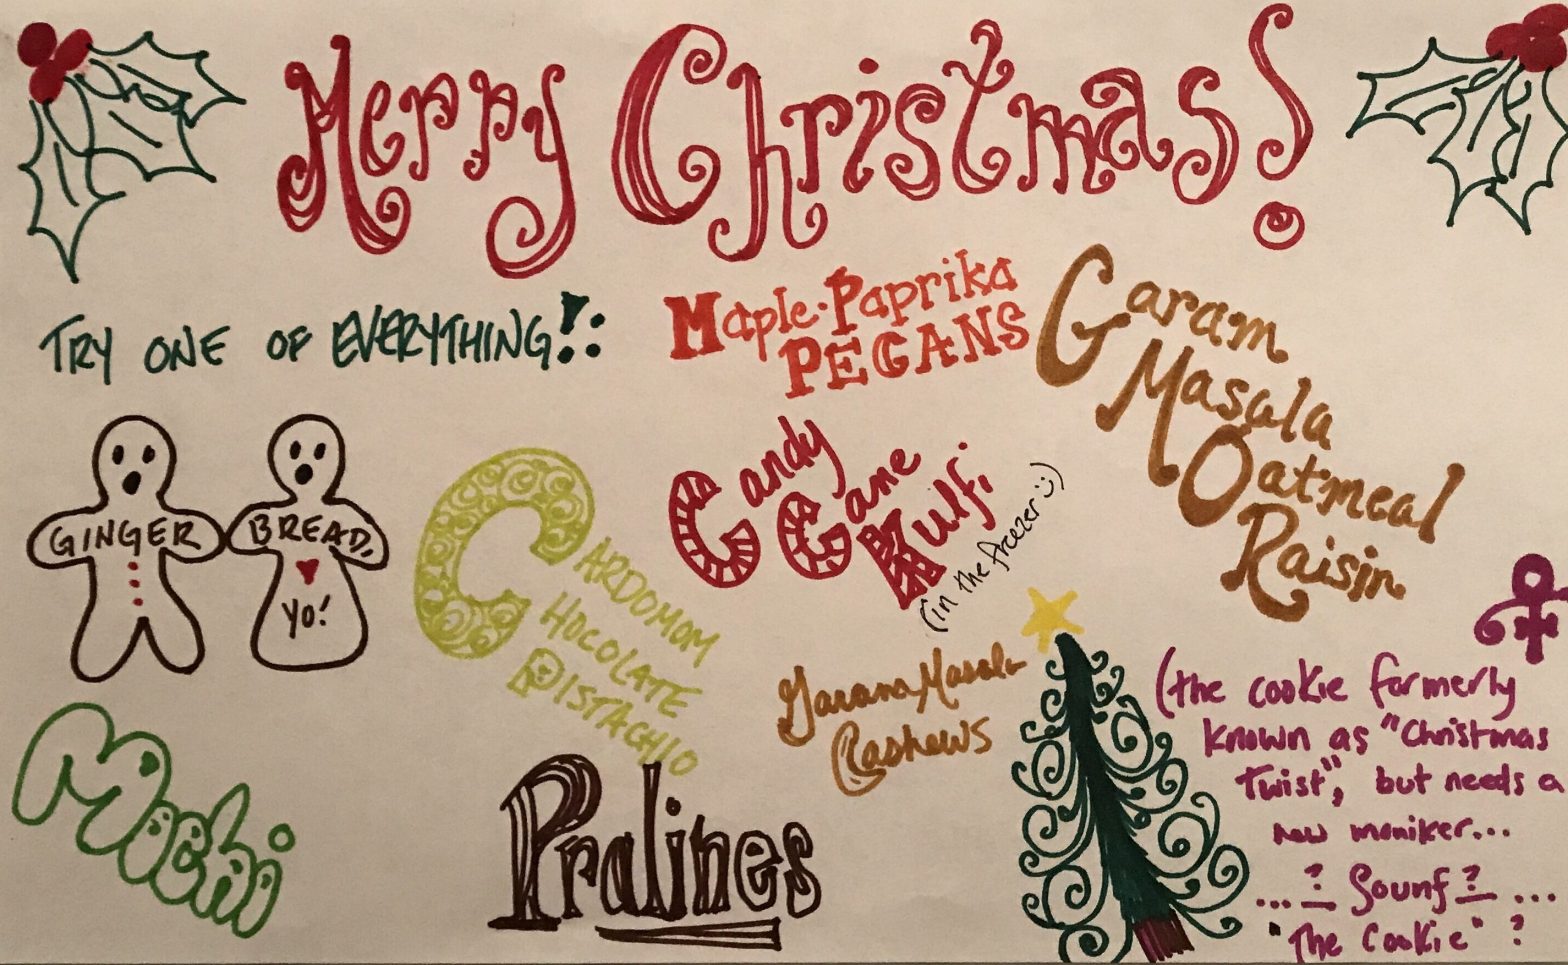 Merry Christmas!
TRY ONE OF EVERYTHING!:
Maple-Paprika
PECANS
Garam
Masala
Oatmeal
Raisin
GINGER BREAD,
YO!
CARDOMOM
CHOCOLATE
PISTACHIO
Candy
Cane
Kulfi
(in the freezer :))
Garam Masala
Cashews
Mochi
Pralines
(the cookie formerly
known as "Christmas
Twist", but needs a
new moniker...
...? Sounf? ...
"The Cookie" ?